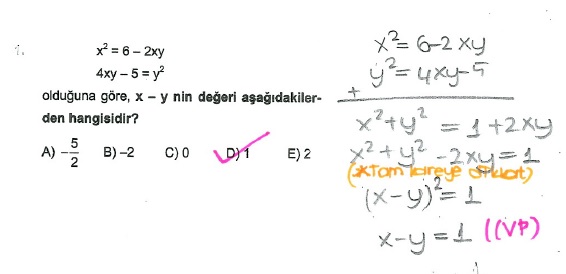 1.
x² = 6 – 2xy
4xy – 5 = y²
olduğuna göre, x – y nin değeri aşağıdakiler-
den hangisidir?
A) –5/2 B) –2 C) 0 D) 1 E) 2
x² = 6-2xy
y² = 4xy-5
+
x²+y² = 1+2xy
x²+y²-2xy=1
(*Tam kareye
(x-y)²=1
x-y=1 ((VP)